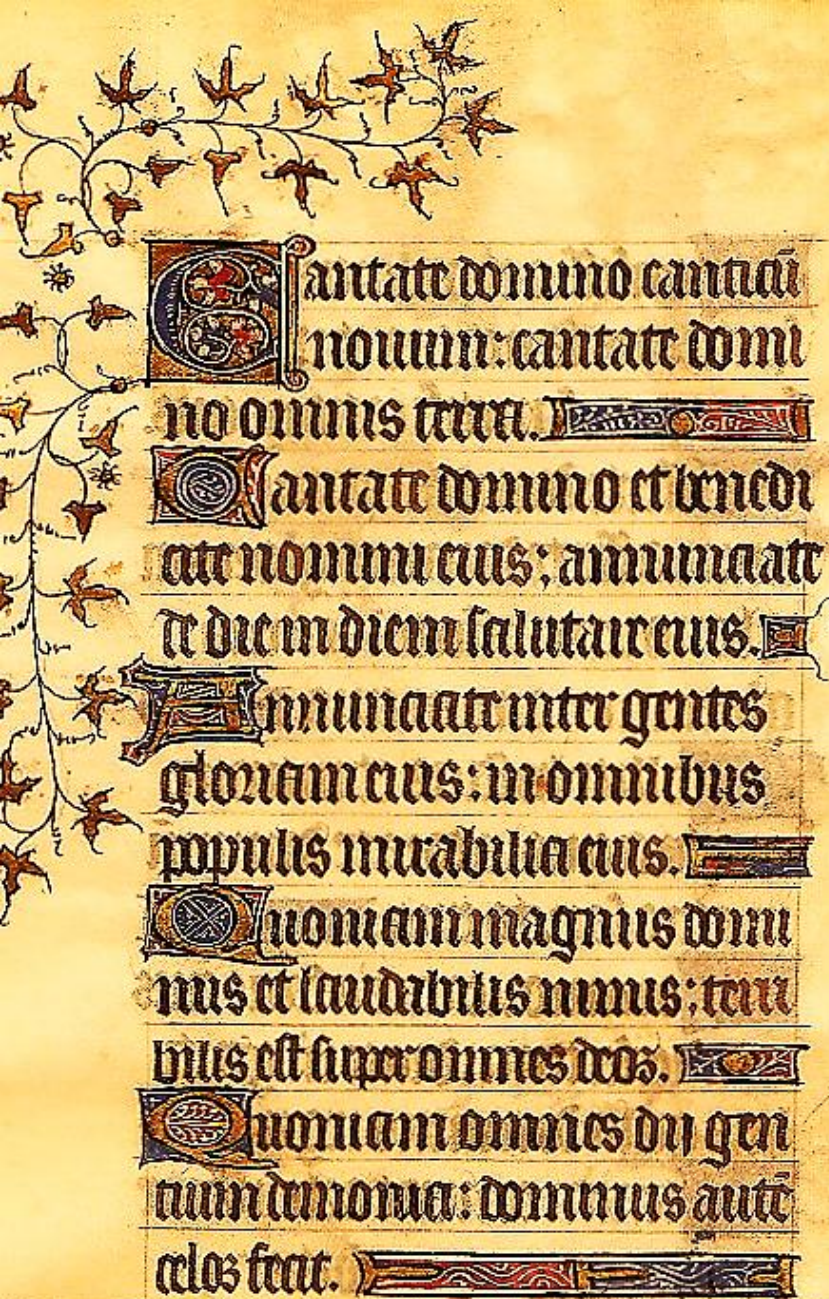 Cantate domino canticū
nouum: cantate domi
no omnis terra.
Cantate domino et benedi
cite nomini eius: annunciate
de die in diem salutare eius.
Annunciate inter gentes
gloriam eius: in omnibus
populis mirabilia eius.
Quoniam magnus domi
nus et laudabilis nimis: terri
bilis est super omnes deos.
Quoniam omnes dij gen
tium demonia: dominus autē
celos fecit.